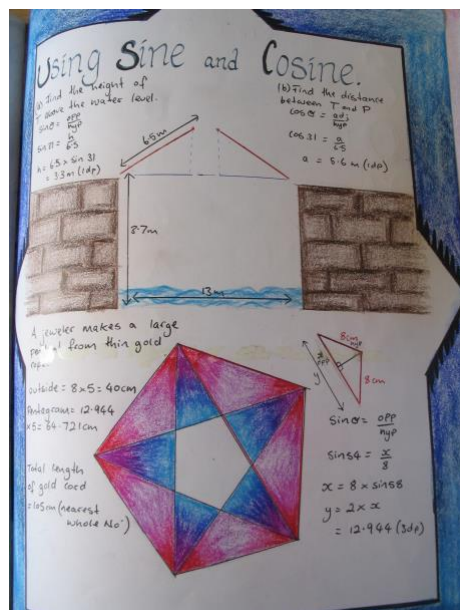 Using Sine and Cosine.
(a) Find the height of
T above the water level.
sinθ = opp/hyp
sin31 = h/6.5
h = 6.5 x sin 31
= 3.3m (1dp)
(b) Find the distance
between T and P
cosθ = adj/hyp
cos31 = a/6.5
a = 5.6m (1dp)
6.5m
8.7m
13m
A jeweler makes a large
from thin gold
outside = 8x5 = 40cm
Pentagram = 12.944
x5 = 64.721cm
Total length
of gold cord
= 105cm (nearest
whole No)
8cm
hyp
8cm
y
sinθ = opp/hyp
sin54 = x/8
x = 8 x sin58
y = 2 x x
= 12.944 (3dp)